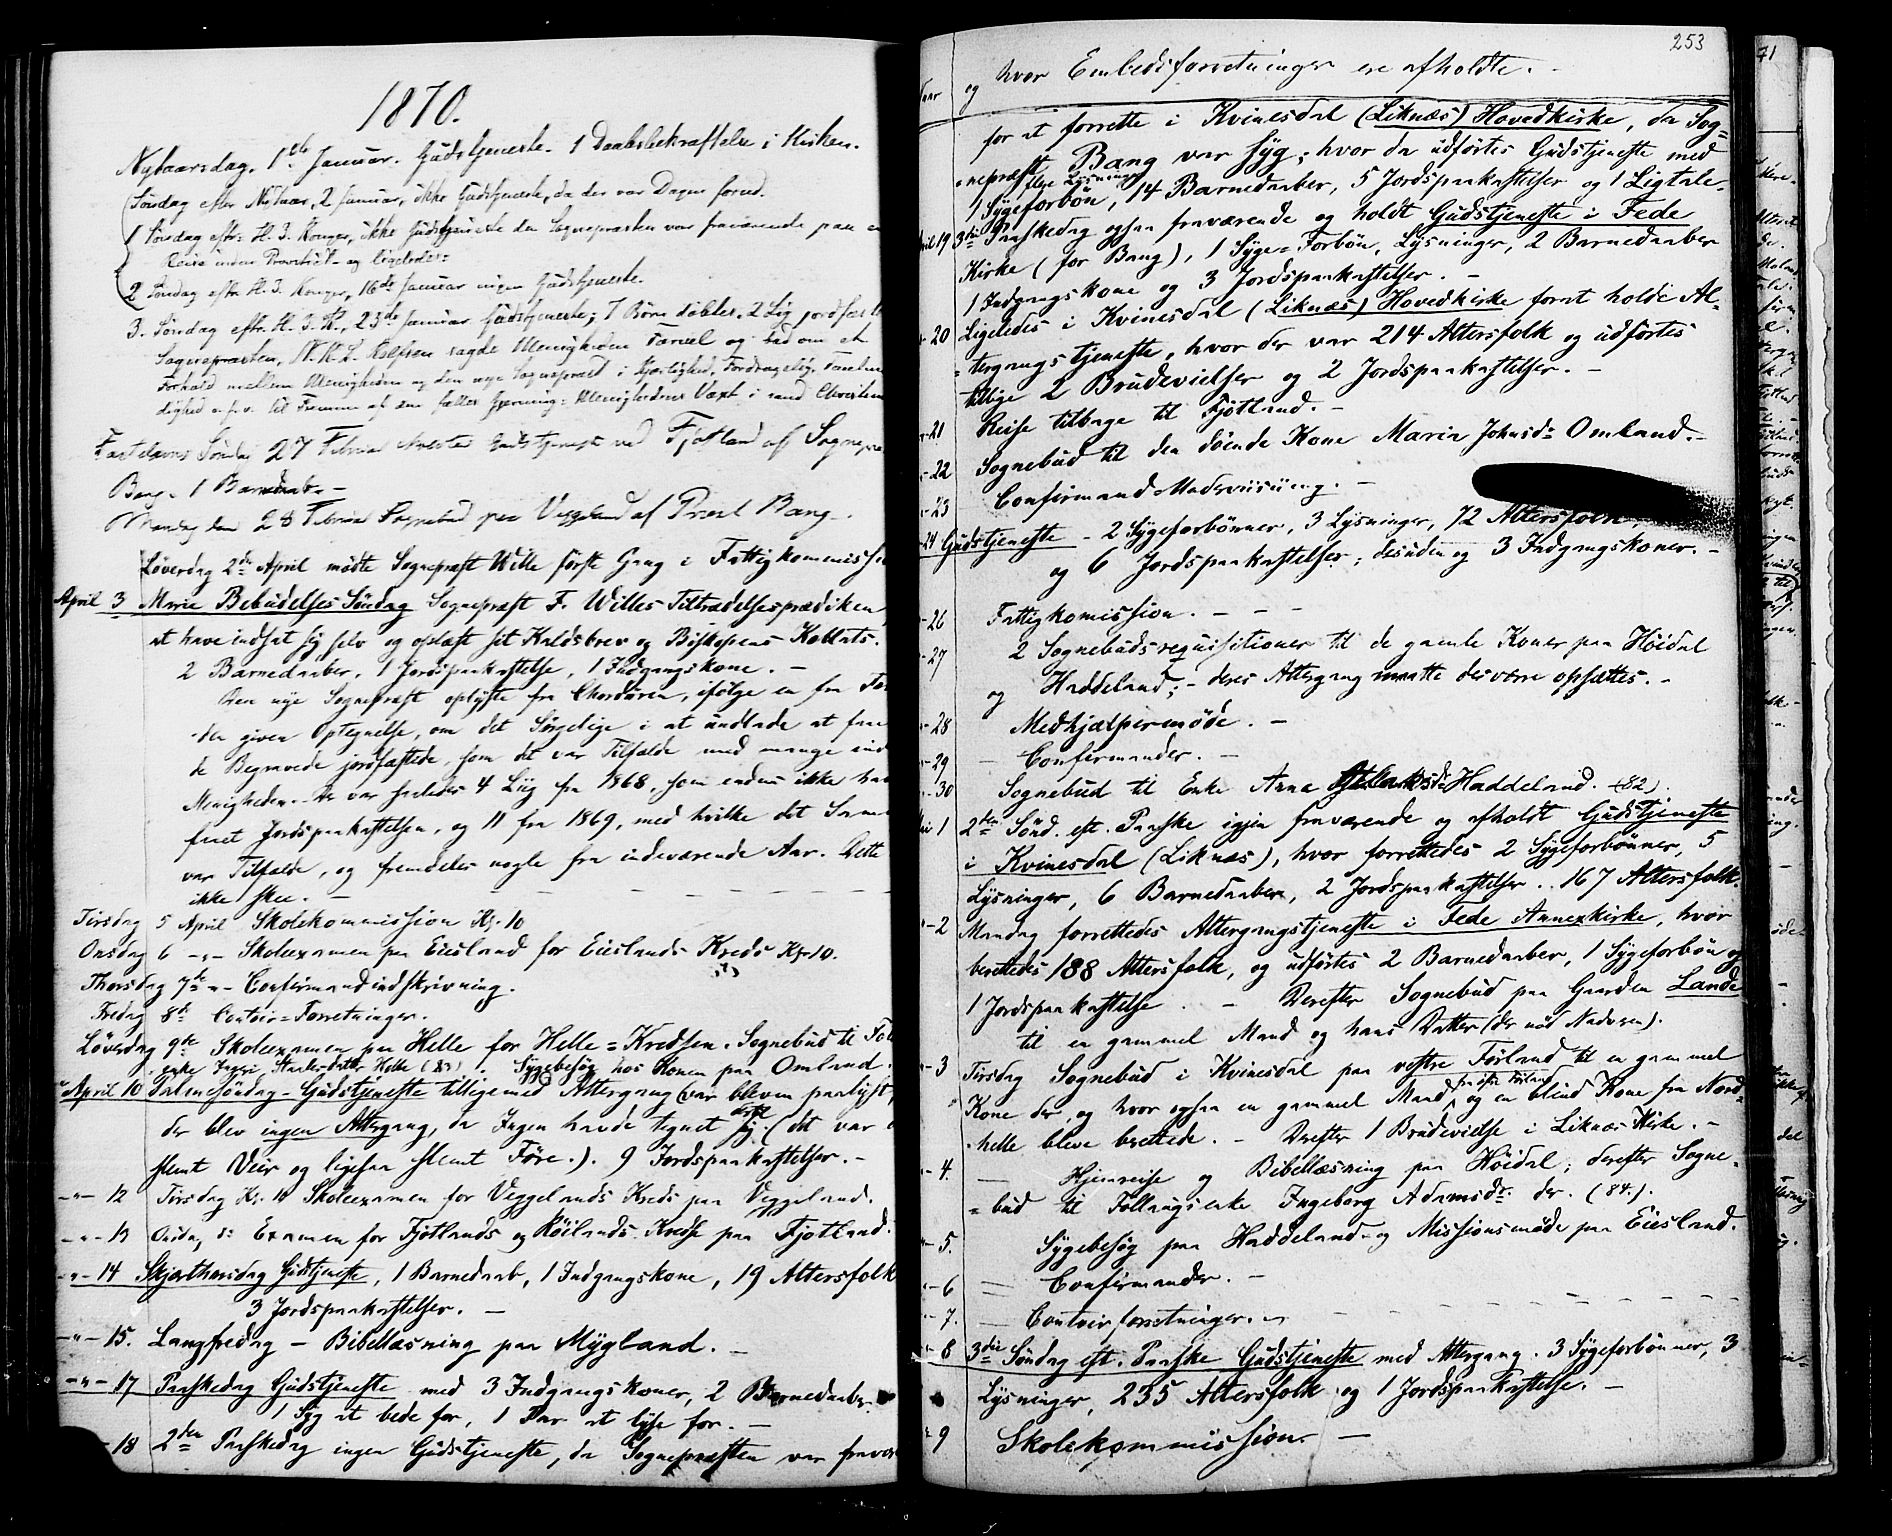 1870.
Nytaarsdag, 1ste Januar. Gudstjeneste. 1 Daabsbekræftelse i Kirken.
Søndag efter Nytaar, 2 Januar, ikke Gudstjeneste, da der var Dagen forud.
1 Søndag eftr. H. 3. Konger, ikke Gudstjeneste da Sognepræsten var fraværende paa en
Reise inden Provstiet og ligeledes:
2 Søndag eftr. H. 3. Konger, 16de Januar ingen Gudstjeneste.
3. Søndag eftr. H. 3. K., 23de Januar Gudstjeneste; 7 Børn døbtes, 2 Lig jordfæst
Sognepræsten, Rolfsen sagde Menigheden Farvel og bad om et
Forhold mellem Menigheden og den nye Sognepræst i Kjærlighed, Fordragelig
dighed o.s.v. til Fremme af den fælles Gjerning: Menighedens Væxt i sand Christen
Fastelavns Søndag 27 Februar Gudstjeneste ved Fjotland af Sognepræ
Bang. 1 Barnedaab. –
Mandag den 28 Februar Sognebud paa Veggeland af Præst Bang.
Løverdag 2den April mødte Sognepræst Wille første Gang i Fattigkommissi
April 3 Mariæ Bebudelses Søndag Sognepræst F. Willes Tiltrædelsesprædiken
at have indsat sig selv og oplæst sit Kaldsbrev og Biskopens Kollats.
2 Barnedaaber, 1 Jordspaakastelse, 1 Indgangskone. –
Den nye Sognepræst oplyste fra Chordøren, ifølge en fra For
der given Optegnelse, om det Sørgelige i at undlade at faae
de Begravede jordfæstede, som det var Tilfælde med mange ind
Menigheden. Der var saaledes 4 Liig fra 1868, som endnu ikke hav
faaet Jordspaakastelsen, og 11 fra 1869, med hvilke det Samme
var Tilfælde, og fremdeles nogle fra indeværende Aar. Dette
ikke skee. –
Tirsdag 5 April Skolekommission Kl. 10
Onsdag 6 –„– Skoleexamen paa Eiesland for Eieslands Kreds Kl. 10.
Thorsdag 7de „– Confirmandindskrivning.
Fredag 8de Contoir=Forretninger.
Løverdag 9de Skoleexamen paa Helle for Helle=Kredsen. Sognebud til Fol
enke Helle (83). Sygebesøg hos Konen paa Omland.
April 10 Palmesøndag – Gudstjeneste tilligemed Altergang (var bleven paalyst,
der blev ingen Altergang, da Ingen havde tegnet sig (det var
slemt Veir og ligesaa slemt Føre.). 9 Jordspaakastelser. –
–„– 12 Tirsdag Kl. 10 Skoleexamen for Veggelands Kreds paa Veggeland.
–„– 13 Onsdag Examen for Fjotlands og Röilands Kredse paa Fjotland.
–„– 14 Skjærthorsdag Gudstjeneste, 1 Barnedaab, 1 Indgangskone, 19 Altersfolk
3 Jordspaakastelser. –
–„– 15. Langfredag – Bibellæsning paa Mygland. –
–„– 17 Paaskedag Gudstjeneste med 3 Indgangskoner, 2 Barnedaaber
1 Syg at bede for, 1 Par at lyse for. –
– 18 2den Paaskedag ingen Gudstjeneste, da Sognepræsten var fravær
253
71
Aar og hvor Embedsforretninger ere afholdte. –
for at forrette i Kvinesdal (Liknæs) Hovedkirke, da Sog=
=nepræst Bang var syg; hvor da udførtes Gudstjeneste med
flere Lysninger
1 Sygeforbön, 14 Barnedaaber, 5 Jordspaakastelser og 1 Ligtale.
April 19 3die Paaskedag ogsaa fraværende og holdt Gudstjeneste i Fede
Kirke (for Bang), 1 Syge=Forbön, Lysninger, 2 Barnedaaber
1 Indgangskone og 3 Jordspaakastelser. –
20 Ligeledes i Kvinesdal (Liknæs) Hovedkirke fornt holde Al=
=tergangstjeneste, hvor der var 214 Altersfolk og udførtes
tillige 2 Brudevielser og 2 Jordspaakastelser. –
– 21 Reise tilbage til Fjotland. –
– 22 Sognebud til den döende Kone Maria Johnsdr Omland. –
– 23 Confirmand-Underviisning. –
– 24 Gudstjeneste – 2 Sygeforbönner, 3 Lysninger, 72 Altersfolk,
og 6 Jordspaakastelser; desuden og 3 Indgangskoner. –
– 26 Fattigkomission. – – –
– 27 2 Sognebudsrequisitioner til de gamle Koner paa Höidal
og Haddeland; – deres Altergang maatte desværre opsættes. –
– 28 Medhjælpermöde. –
– 29 – Confirmander. –
– 30 Sognebud til Enke Anna Haddeland. (82).
Mai 1 2den Sönd. eft. Paaske igjen fraværende og afholdt Gudstjeneste
i Kvinesdal (Liknæs), hvor forrettedes 2 Sygeforbönner, 5
Lysninger, 6 Barnedaaber, 2 Jordspaakastelser. . 167 Altersfolk.
– 2 Mandag forrettedes Altergangstjeneste i Fede Annexkirke, hvor
berettedes 188 Altersfolk, og udførtes 2 Barnedaaber, 1 Sygeforbön og
1 Jordspaakastelse. – Derefter Sognebud paa Gaarden Lande
til en gammel Mand og hans Datter (der nöd Nadveren).
– 3 Tirsdag Sognebud i Kvinesdal paa vestre Förland til en gammel
Kone der, og hvor ogsaa en gammel Mand fra østre Förland og en blind Kone fra Nord=
=helle bleve berettede. – Derefter 1 Brudevielse i Liknæs Kirke. –
– 4. – Hjemreise og Bibellæsning paa Höidal; derefter Sogne=
=bud til Follaugsenke Ingeborg Adamsdr der. (84.).
– 5. Sygebesög paa Haddeland og Missionsmöde paa Eiesland.
– 6 – Confirmander. –
– 7. – Contoirforretninger. –
– 8 3die Söndag eft. Paaske Gudstjeneste med Altergang. 3 Sygeforbönner, 3
Lysninger, 235 Altersfolk og 1 Jordspaakastelse. –
– 9 Skolekommission. –